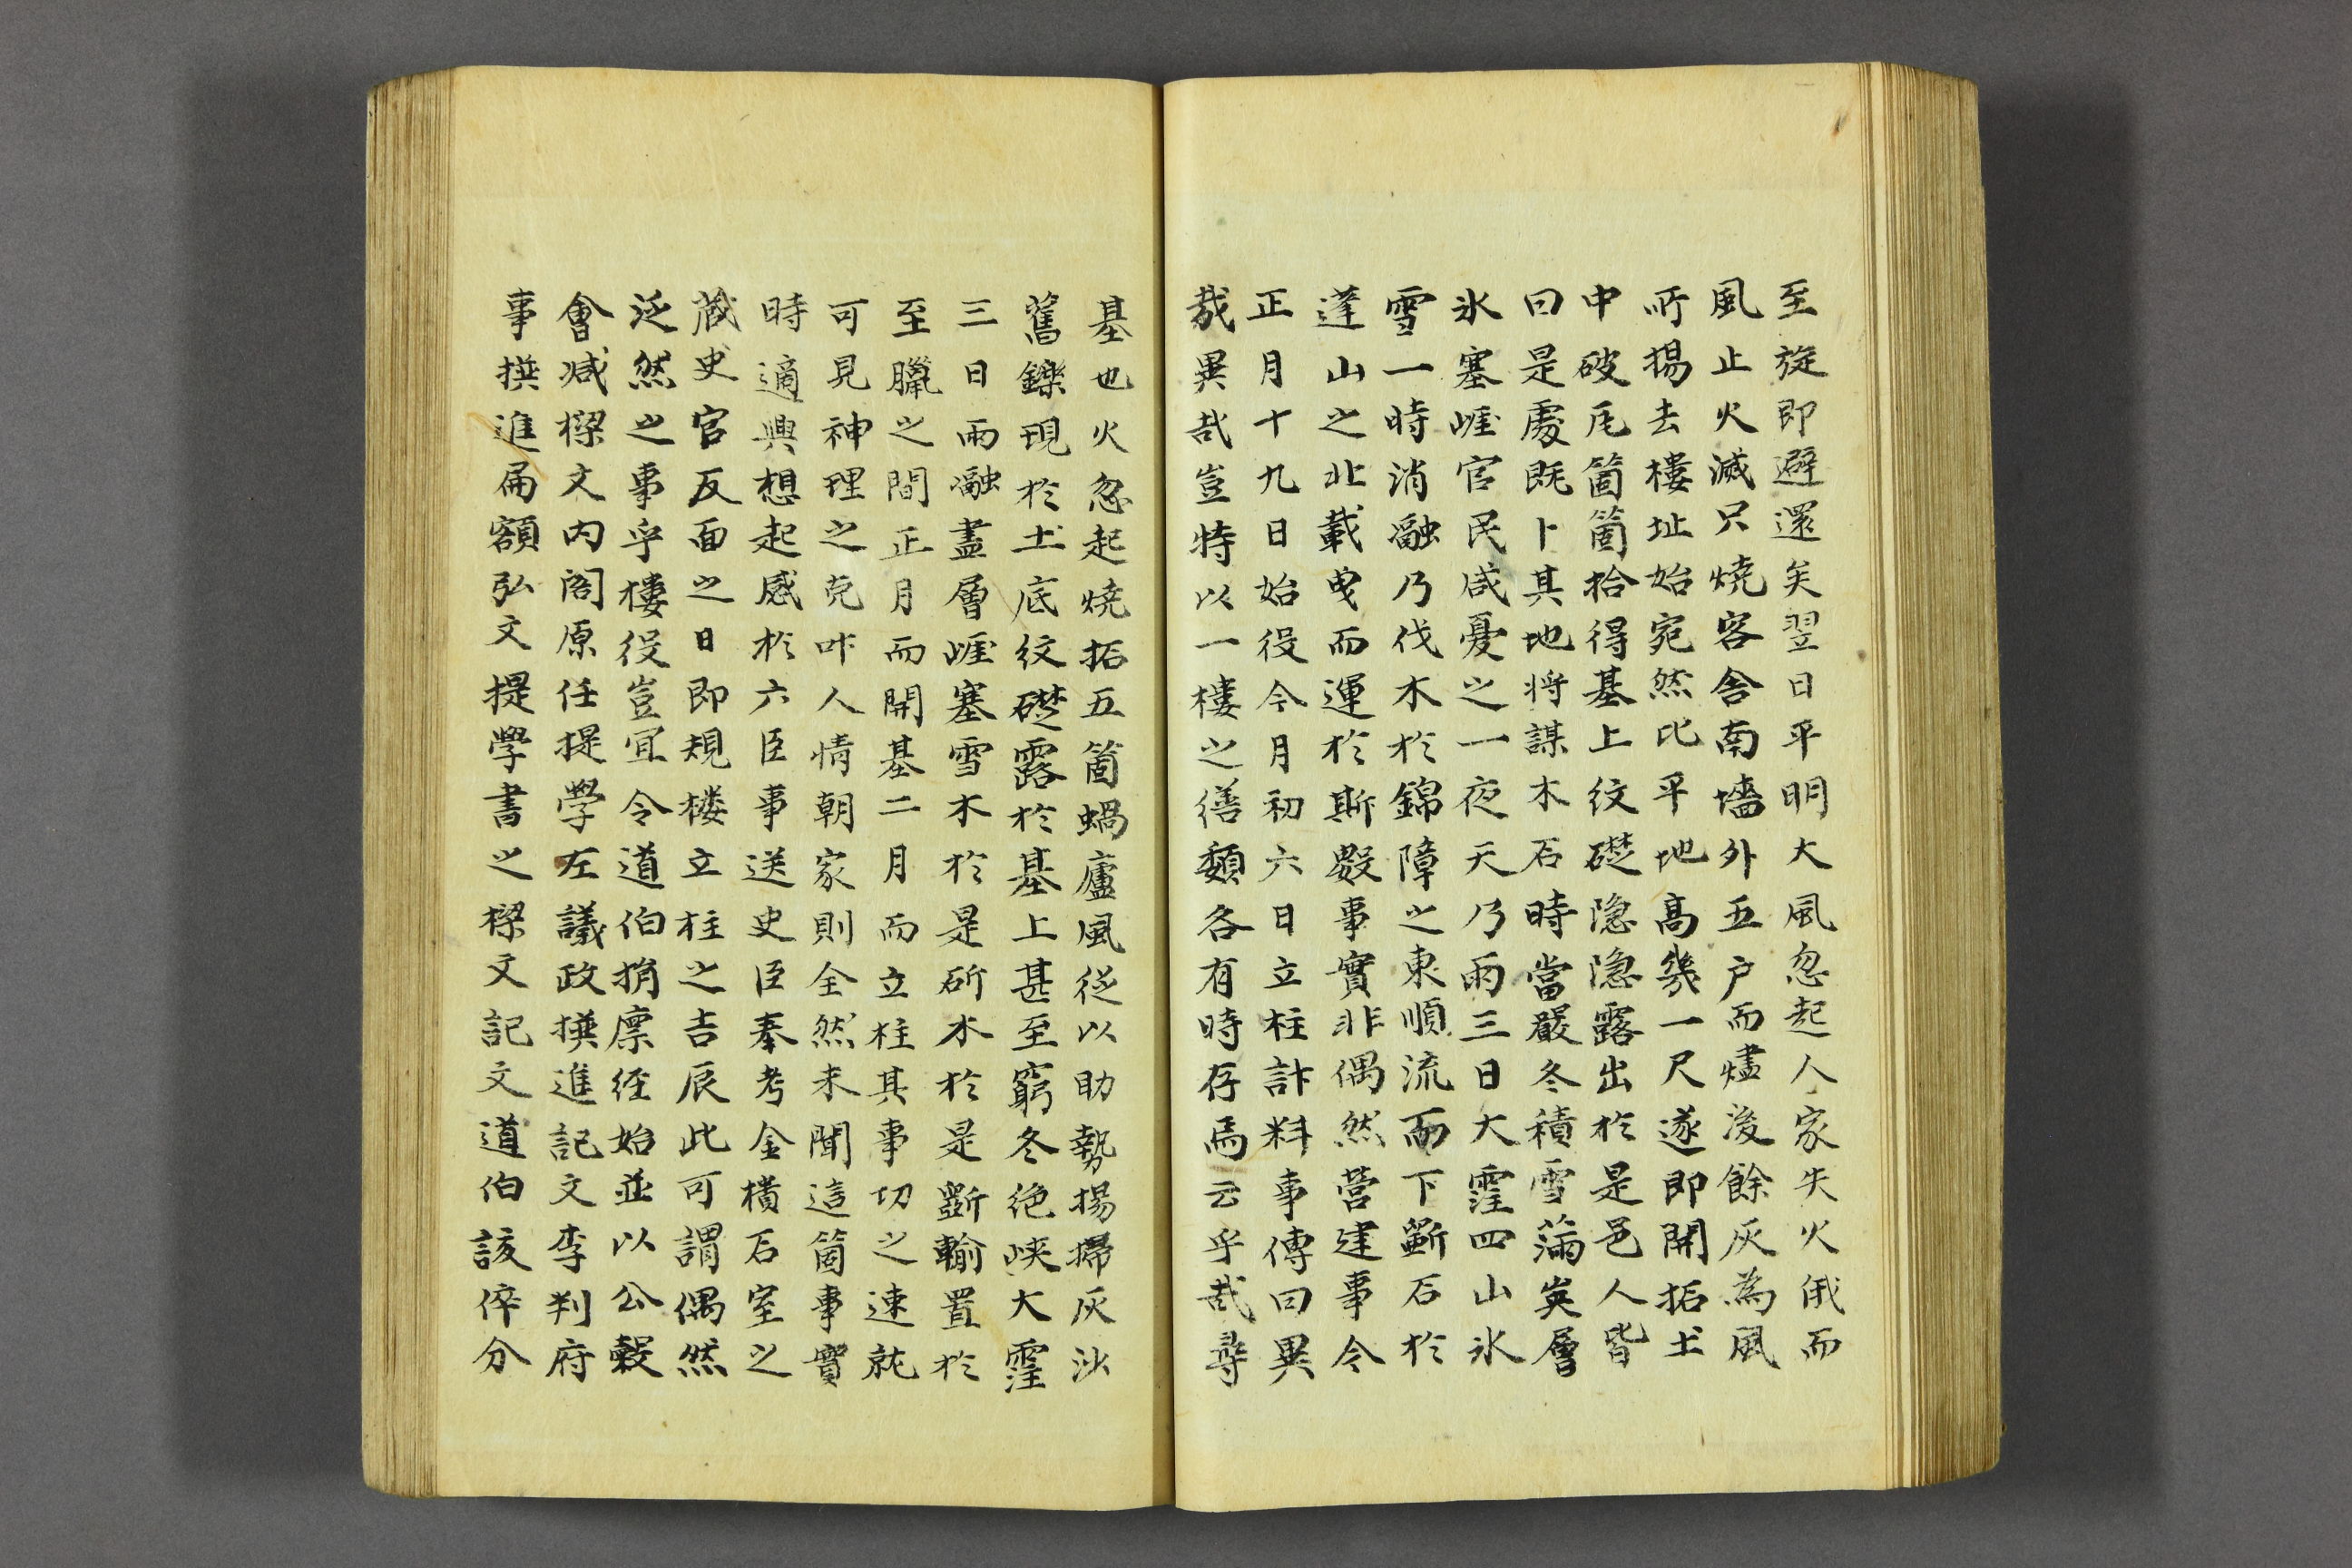 至旋即避還矣翌日平明大風忽起人家失火俄而
風止火滅只燒客舍南墻外五戶而燼後餘灰為風
所揚去樓址始宛然比平地高幾一尺遂即開拓土
中破瓦箇箇拾得基上紋礎隐隐露出於是邑人皆
曰是處既卜其地將謀木石時當嚴冬積雪滿嶺層
氷塞崕官民咸憂之一夜天乃雨三日大霔四山氷
雪一時消融乃伐木於錦障之東順流而下斲石於
蓬山之北載曳而運於斯數事實非偶然營建事令
正月十九日始役今月初六日立柱計料事傳曰異
哉異哉豈特以一樓之繕類各有時存焉云乎哉尋
基也火忽起燒拓五箇蝸廬風從以助勢揚掃灰沙
舊鑠現於土底紋礎露於基上甚至窮冬絶峽大霔
三日雨融盡層崕塞雪木於是斫木於是斲輸置於
至臘之間正月而開基二月而立柱其事功之速就
可見神理之克咋人情朝家則全然未聞這箇事實
時適興想起感於六臣事送史臣奉考金樻石室之
藏史官反面之日即覌楼立柱之吉辰此可謂偶然
泛然之事乎樓役豈宜令道伯捐廪经始並以公糓
會减樑文内閣原任提學左議政撰進記文李判府
事撰進扁額弘文提學書之樑文記文道伯該倅分